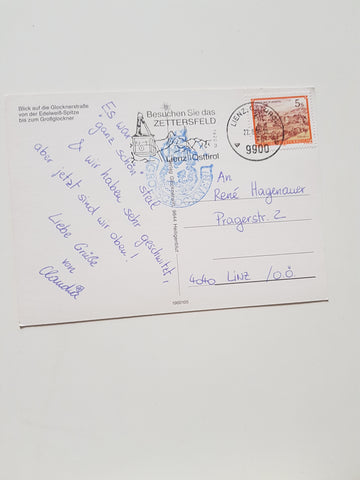 Blick auf die Glocknerstraße
von der Edelweiß-Spitze
bis zum Großglockner
Es war
ganz schön steil
& wir haben sehr geschwitzt,
aber jetzt sind wir oben!
Liebe Grüße
von
Claudia
Besuchen Sie das
ZETTERSFELD
Lienz/Osttirol
LIENZ
9900
5s
An
René Hagenauer
Pragerstr. 2
4040 LINZ /O.Ö.